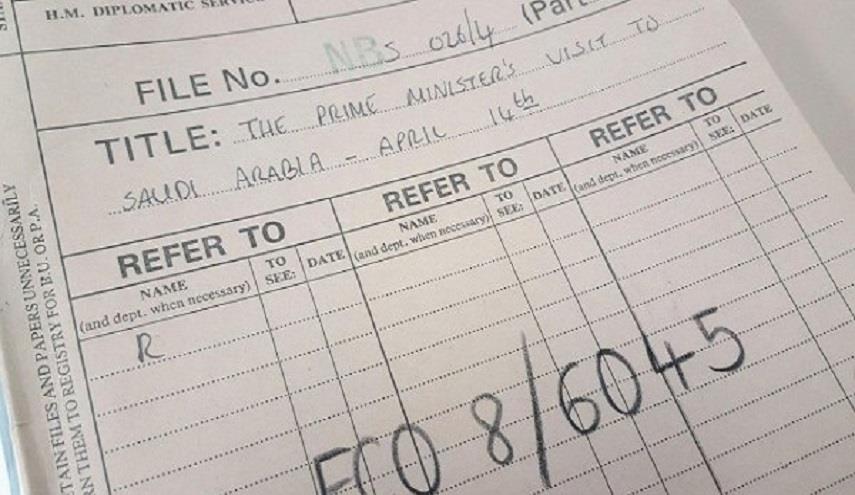 H.M. DIPLOMATIC
FILE No. NBS 026/4 (Part
TITLE: THE PRIME MINISTER'S VISIT TO
SAUDI ARABIA - APRIL 14th
REFER TO
NAME
(and dept. when necessary)
TO
SEE:
DATE
R
REFER TO
NAME
(and dept. when necessary)
TO
SEE:
DATE
REFER TO
NAME
(and dept. when necessary)
TO
SEE:
DATE
FCO 8/6045
TAIN FILES AND PAPERS UNNECESSARILY
RN THEM TO REGISTRY FOR B.U. OR P.A.